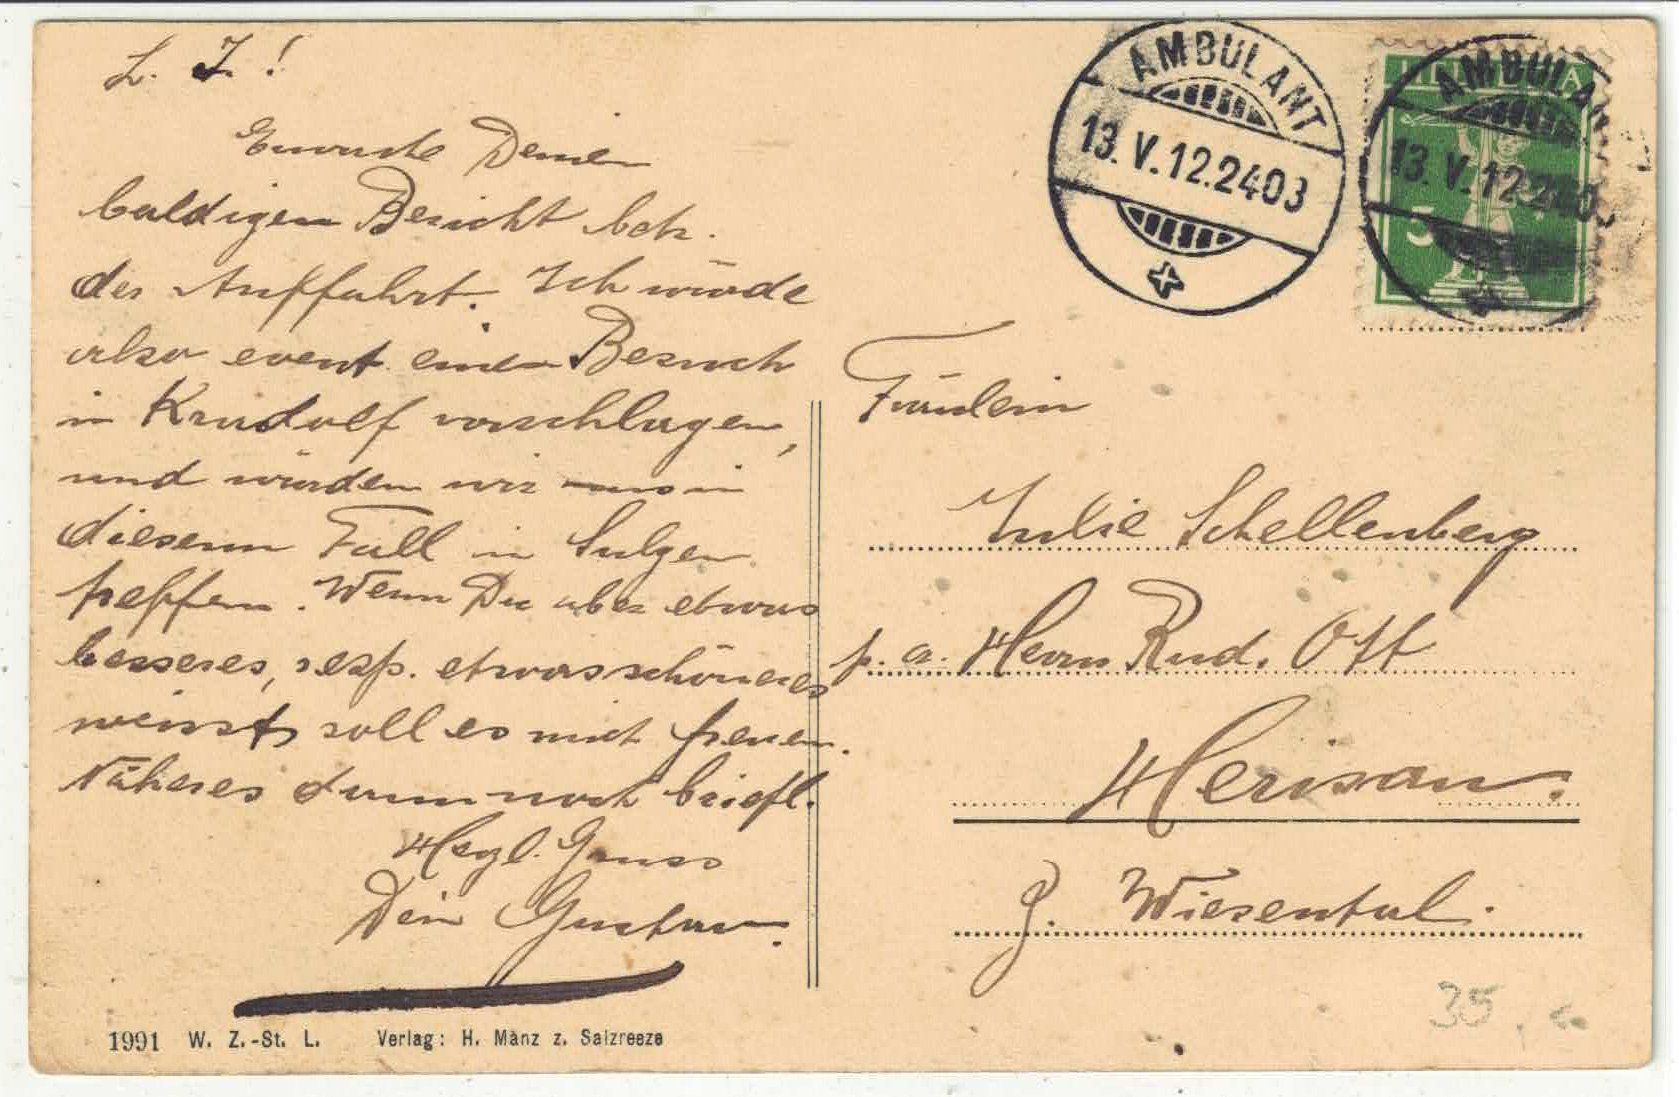 L. J.!
Erwarte Deinen
baldigen Bericht betr.
der Auffahrt. Ich würde
also event. einen Besuch
in Kradolf vorschlagen,
und würden wir uns in
diesem Fall in Sulgen
treffen. Wenn Du aber etwas
besseres, resp. etwas schöneres
weisst, soll es mich freuen.
Näheres dann noch briefl.
Herzl. Gruss
Dein Gustav.
1991 W. Z.-St. L. Verlag: H. Mànz z. Salzreeze
AMBULANT
13.V.12.2403
HELVETIA
5
AMBULANT
13.V.12.2403
Fräulein
Julie Schellenberg
p. a. Herrn Rud. Ott
Herisau.
z. Wiesental.
35.